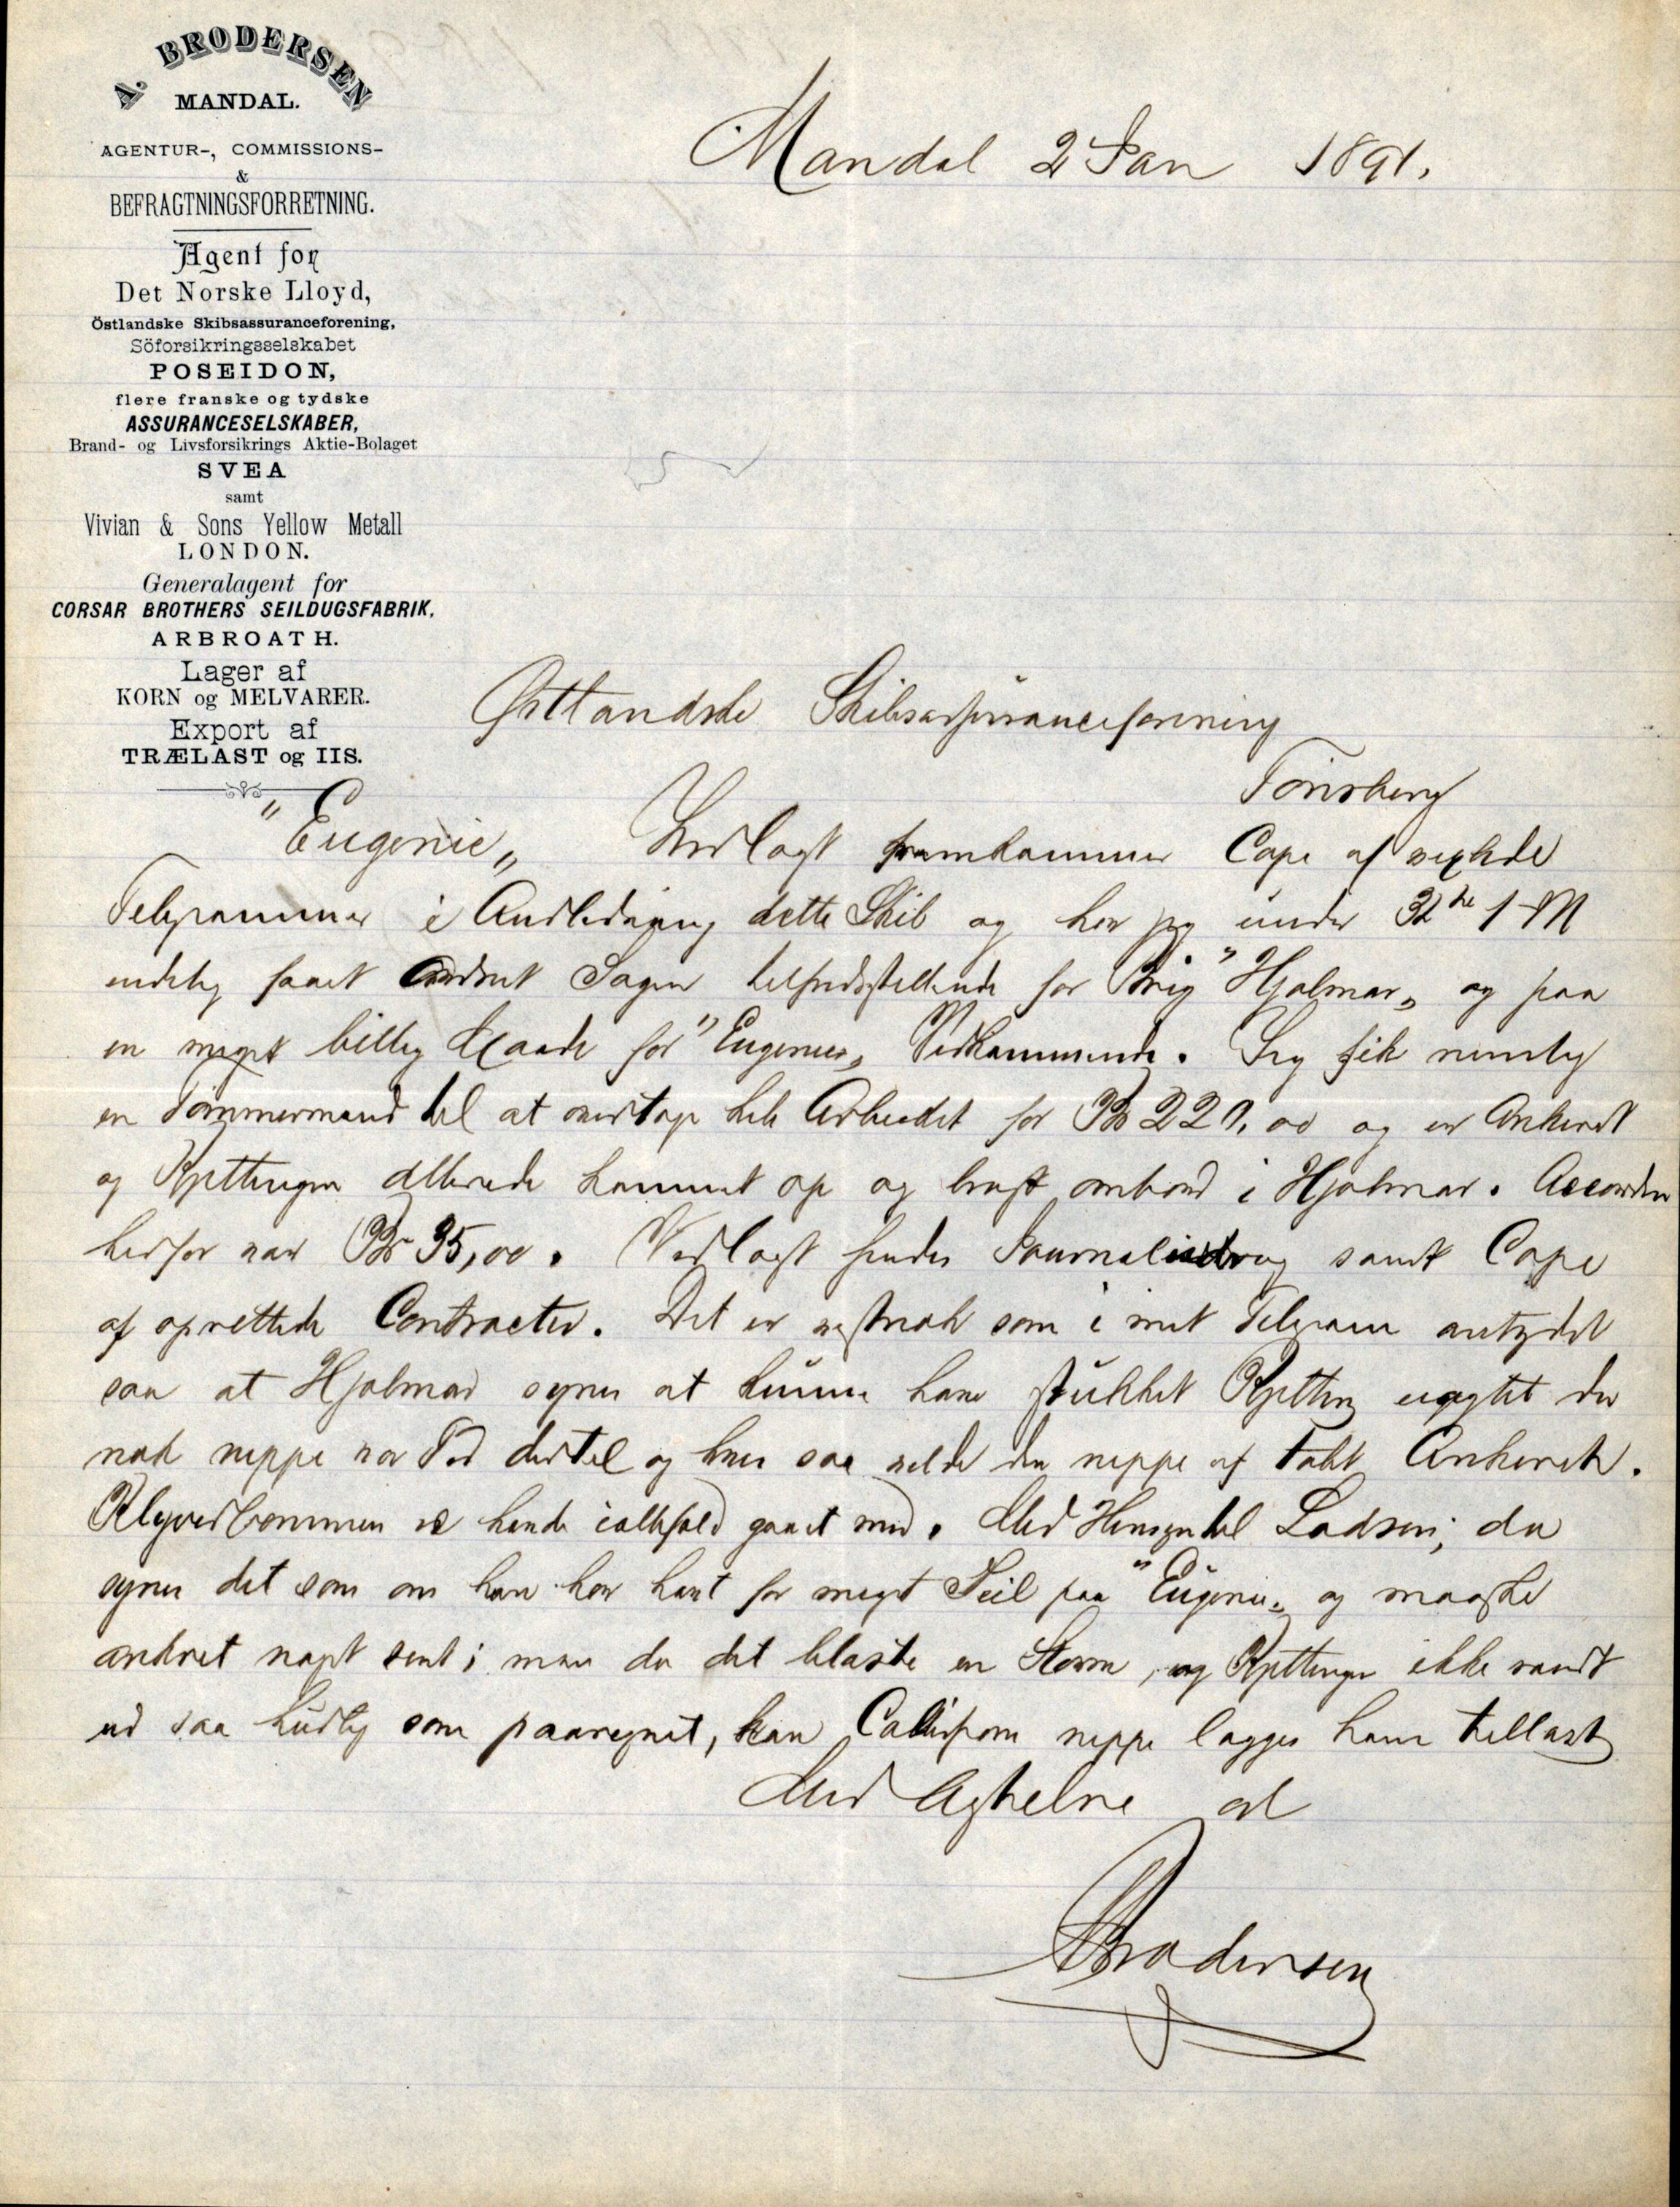 A. BRODERSEN
MANDAL.
AGENTUR-, COMMISSIONS-
&
BEFRAGTNINGSFORRETNING.
Agent for
Det Norske Lloyd,
Östlandske Skibsassuranceforening,
Söforsikringsselskabet
POSEIDON,
flere franske og tydske
ASSURANCESELSKABER,
Brand- og Livsforsikrings Aktie-Bolaget
SVEA
samt
Vivian & Sons Yellow Metall
LONDON.
Generalagent for
CORSAR BROTHERS SEILDUGSFABRIK,
ARBROATH.
Lager af
KORN og MELVARER.
Export af
TRÆLAST og IIS.
Mandal 2 Jan 1891.
Østlandske Skibsassuranceforening
Tönsberg
"Eugenie„ Indlagt fremkommer Copi af vexlede
Telegrammer i Andledning dette Skib og har jeg under
endelig faaet ordnet Sagen tilfredsstillende for Brig "Hjalmar„ og paa
en meget billig Maade for "Eugenies„ Vedkommende. Jeg fik nemlig
en Tömmermand til at overtage hele Arbeidet for og er Ankeret
og Kjettingen allerede kommet op og bragt ombord i Hjalmar. Accorden
herfor var Kr 35,00. Vedlagt sendes Journaludrag samt Copi
af oprettede Contracter. Det er nok som i mit Telegram antydet
saa at Hjalmar synes at kunne have stukket Kjetting uagtet der
nok neppe var Tid dertil og hvis saa vilde den neppe af Ankeret.
Klyverbommen vilde ialtfald gaaet med. Med Hensyn til Lodsen, da
synes det som om han har havt for meget Seil paa "Eugenie„ og maaske
ankret noget sent; men da det blæste en Storm, og Kjettingen ikke randt
ud saa hurtig som paaregnet, kan neppe lægges ham tillast
Med Agtelse
ABrodersen